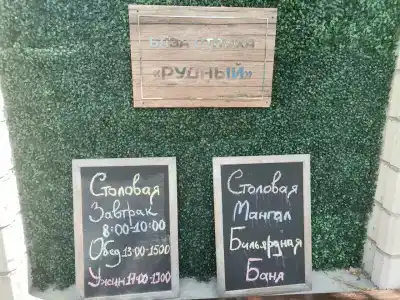 БАЗА ОТДЫХА
«РУДНЫЙ»
Столовая
Завтрак
8:00-10:00
Обед 13:00-15:00
Ужин 17:00-19:00
Столовая
Мангал
Бильярдная
Баня